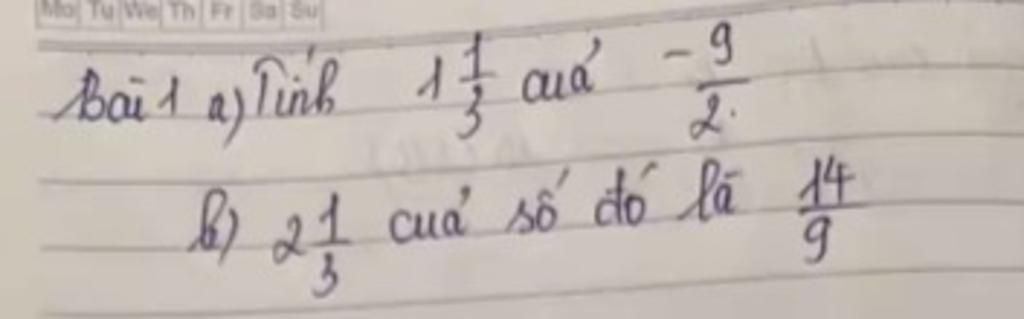 Mo Tu We Th Fr Sa Su
Bài 1 a) Tính 1 1/3 cuả -9/2.
b) 2 1/3 cuả số đó là 14/9